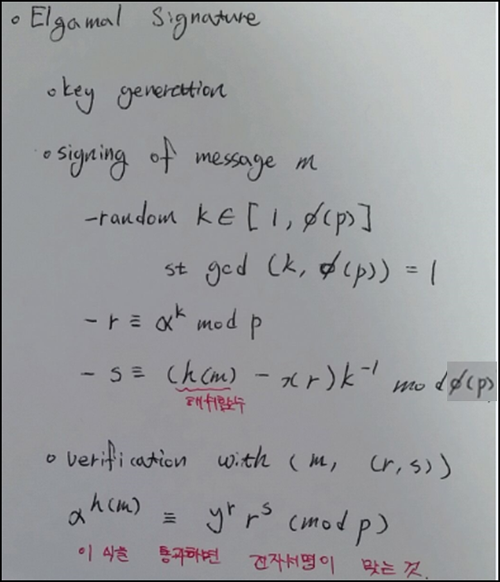 ◦ Elgamal Signature
◦ key generation
◦ signing of message m
- random k ∈ [1, ϕ(p)]
st gcd (k, ϕ(p)) = 1
- r ≡ α^k mod p
- s ≡ (h(m) - xr)k^-1 mod ϕ(p)
해쉬함수
◦ verification with (m, (r,s))
α^h(m) ≡ y^r r^s (mod p)
이 식을 통과하면 전자서명이 맞는 것.